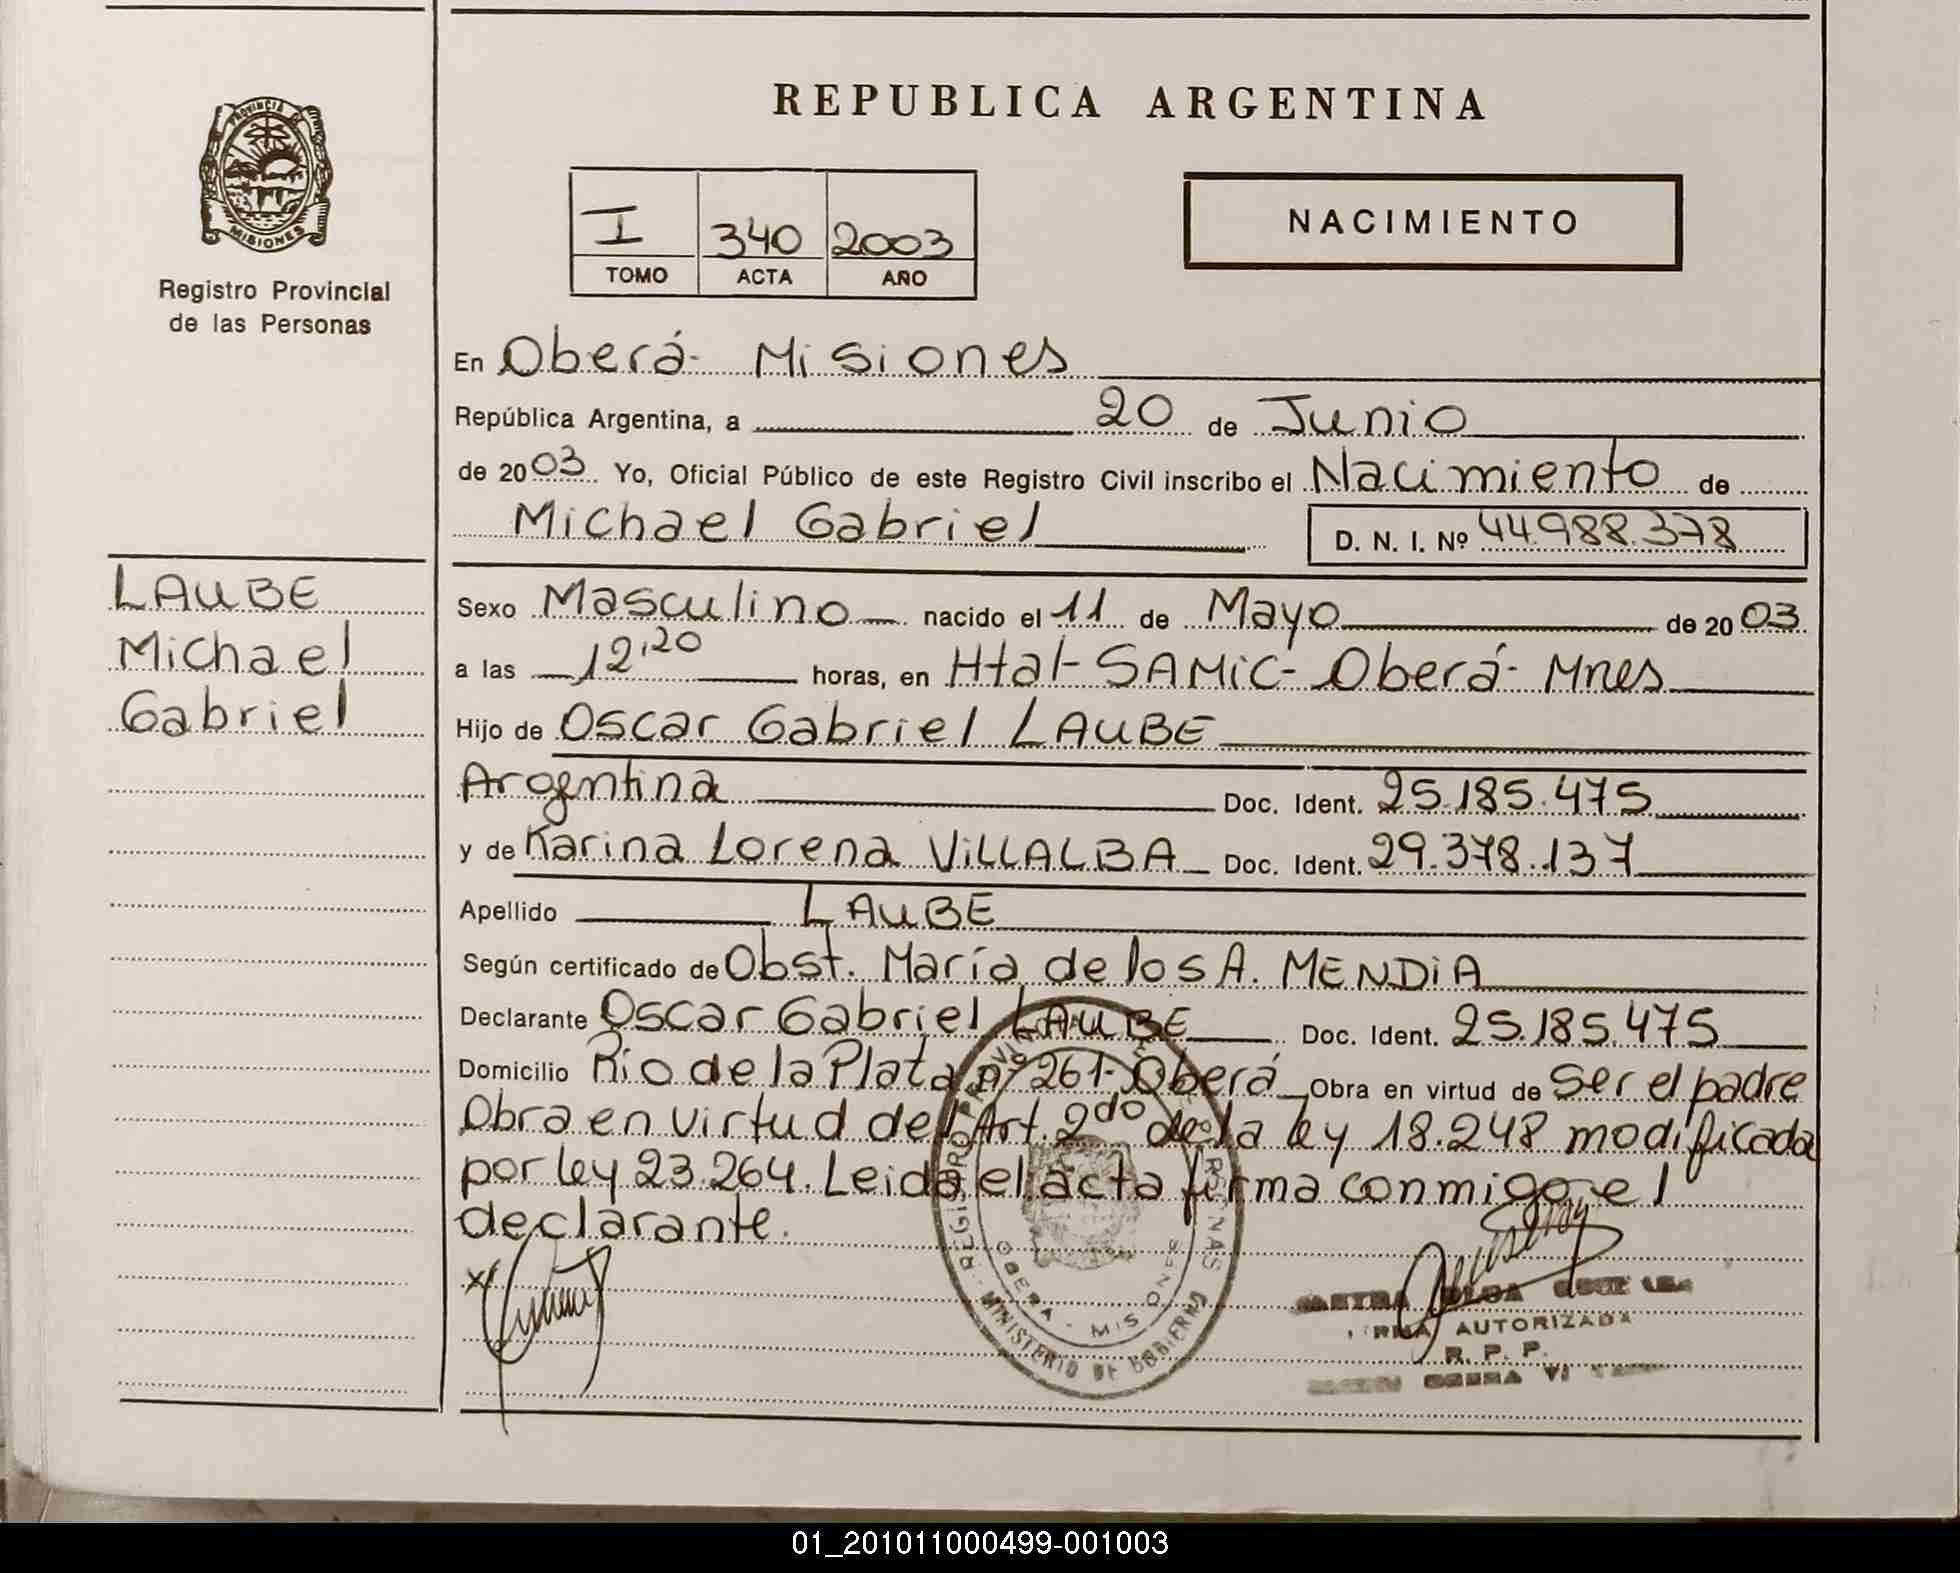 REPUBLICA ARGENTINA
PROVINCIA DE
MISIONES
Registro Provincial
de las Personas
I 340 2003
TOMO ACTA AÑO
NACIMIENTO
En Oberá- Misiones
República Argentina, a 20 de Junio
de 2003. Yo, Oficial Público de este Registro Civil inscribo el Nacimiento de
Michael Gabriel D. N. I. Nº 44.988.378
LAUBE
Michael
Gabriel
Sexo Masculino nacido el 11 de Mayo de 2003
a las 12,20 horas, en Htal-SAMiC- Oberá- Mnes
Hijo de Oscar Gabriel LAUBE
Argentina Doc. Ident. 25.185.475
y de Karina Lorena ViLLALBA Doc. Ident. 29.378.137
Apellido LAUBE
Según certificado de Obst. María de los A. MENDiA
Declarante Oscar Gabriel LAUBE Doc. Ident. 25.185.475
Domicilio Río de la Plata nº 261- Oberá Obra en virtud de Ser el padre
Obra en virtud del Art. 2do de la ley 18.248 modificada
por ley 23.264. Leida el acta firma conmigo el
declarante.
x
REGISTRO PROVINCIAL DE LAS PERSONAS
OBERA - MISIONES
- MINISTERIO DE GOBIERNO
AUTORIZADA
R. P. P.
01_201011000499-001003